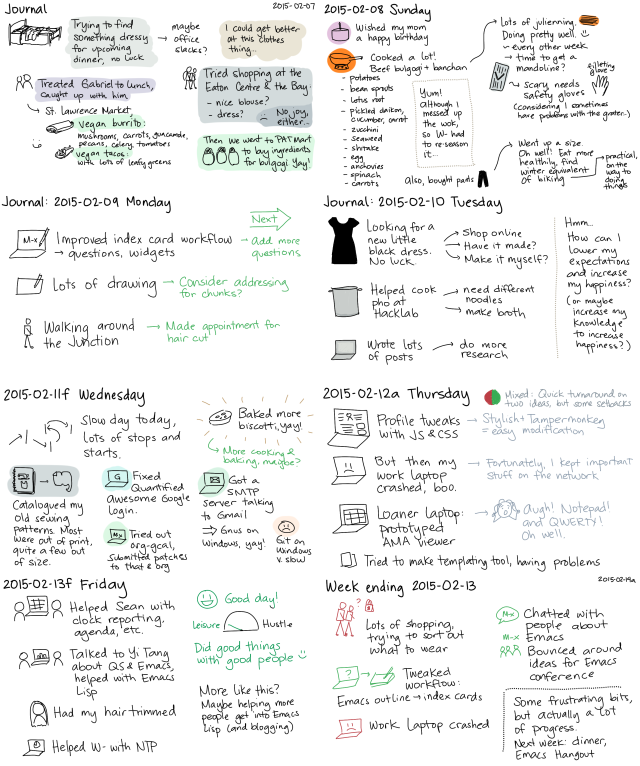 Journal
2015-02-07
Trying to find
something dressy
for upcoming
dinner, no luck
maybe
office
slacks?
I could get better
at this clothes
thing...
Treated Gabriel to lunch,
caught up with him
St. Lawrence Market,
vegan burrito:
mushrooms, carrots, guacamole,
pecans, celery, tomatoes
vegan tacos:
with lots of leafy greens
Tried shopping at the
Eaton Centre & the Bay.
- nice blouse?
- dress?
No joy,
either.
Then we went to PAT Mart
to buy ingredients
for bulgogi. Yay!
2015-02-08 Sunday
Wished my mom
a happy birthday
Cooked a lot!
Beef bulgogi + banchan
• potatoes
• bean sprouts
• lotus root
• pickled daikon,
cucumber, carrot
• zucchini
• seaweed
• shiitake
• egg
• anchovies
• spinach
• carrots
Yum!
although I
messed up
the wok,
so W- had
to re-season
it...
Also, bought pants
Lots of julienning.
Doing pretty well.
- every other week
→ time to get a
mandoline?
filleting
glove
→ scary needs
safety gloves
(considering I sometimes
have problems with the grater...)
Went up a size.
Oh well! Eat more
healthily, find
winter equivalent
of biking
practical,
on the
way to
doing
things
Journal: 2015-02-09 Monday
Next
M-x
Improved index card workflow
→ questions, widgets
→ Add more
questions
Lots of drawing
→ Consider addressing
for chunks?
Walking around
the Junction
→ Made appointment for
hair cut
Journal: 2015-02-10 Tuesday
Looking for a
new little
black dress.
No luck.
Shop online
Have it made?
Make it myself?
Helped cook
pho at
HackLab
need different
noodles
make broth
Wrote lots
of posts
→ do more
research
Hmm...
How can I
lower my
expectations
and increase
my happiness?
(or maybe
increase my
knowledge
to increase
happiness?)
2015-02-11f Wednesday
Slow day today,
lots of stops and
starts.
Baked more
biscotti, yay!
More cooking &
baking, maybe?
Catalogued my
old sewing
patterns. Most
were out of print,
quite a few out
of size.
G
Fixed
Quantified
Awesome Google
login.
Mx
Tried out
org-gcal,
submitted patches
to that & org
Got a
SMTP
server talking
to Gmail
⇒ Gnus on
Windows, yay!
Git on
Windows
v. slow
2015-02-12a Thursday
Mixed: Quick turnaround on
two ideas, but some setbacks
Profile tweaks
with JS & CSS
→ Stylish + Tampermonkey
= easy modification
But then my
work laptop
crashed, boo.
→ Fortunately, I kept important
stuff on the network
Loaner Laptop:
Prototyped
AMA viewer
Augh! Notepad!
and QWERTY!
Oh well.
Tried to make templating tool, having problems
2015-02-13f Friday
Helped Sean with
clock reporting,
agenda, etc.
Talked to Yi Tang
about QS & Emacs,
helped with Emacs
Lisp
Had my hair trimmed
Helped W- with NTP
Good day!
Leisure
Hustle
Did good things
with good people
More like this?
Maybe helping more
people get into Emacs
Lisp (and blogging)
Week ending 2015-02-13
2015-02-14a
Lots of shopping,
trying to sort out
what to wear
Tweaked
workflow:
Emacs outline → index cards
Work Laptop crashed
M-x
Chatted with
people about
M-x
Emacs
Bounced around
ideas for Emacs
conference
Some frustrating bits,
but actually a lot
of progress.
Next week: dinner,
Emacs Hangout